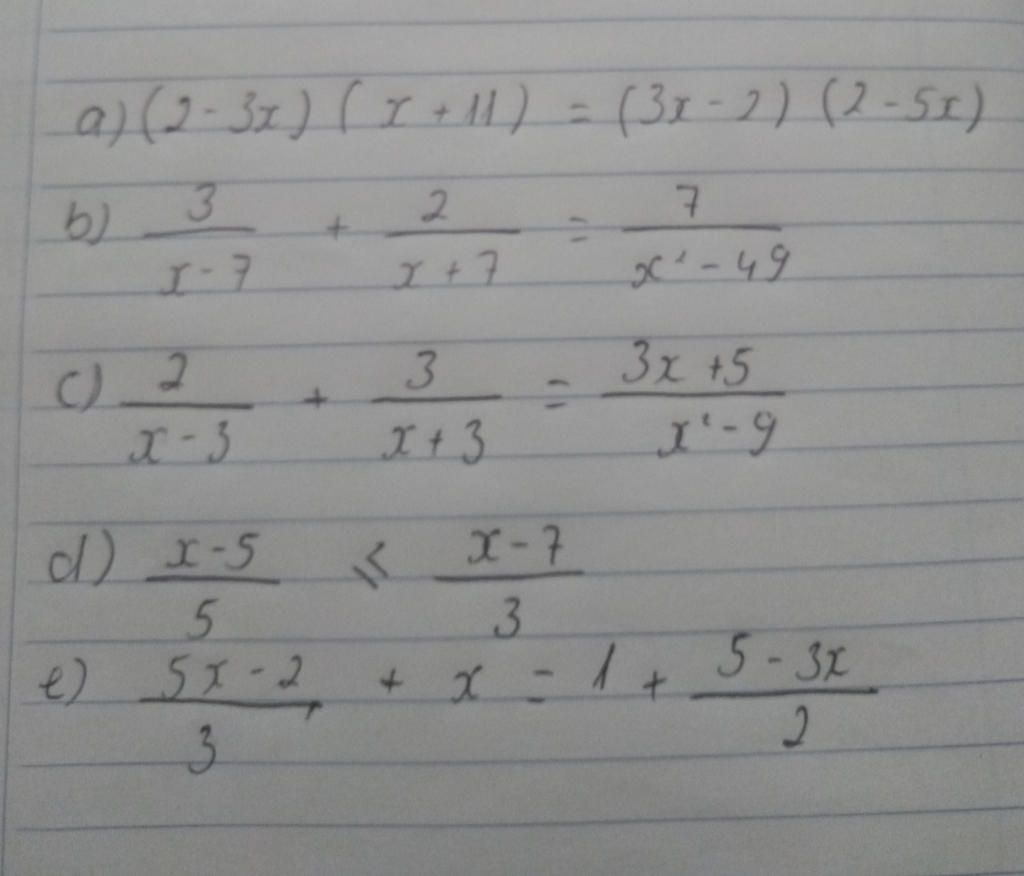 a) (2-3x) (x+11) = (3x-2) (2-5x)
b) 3/(x-7) + 2/(x+7) = 7/(x²-49)
c) 2/(x-3) + 3/(x+3) = (3x+5)/(x²-9)
d) (x-5)/5 ⩽ (x-7)/3
e) (5x-2)/3 + x = 1 + (5-3x)/2